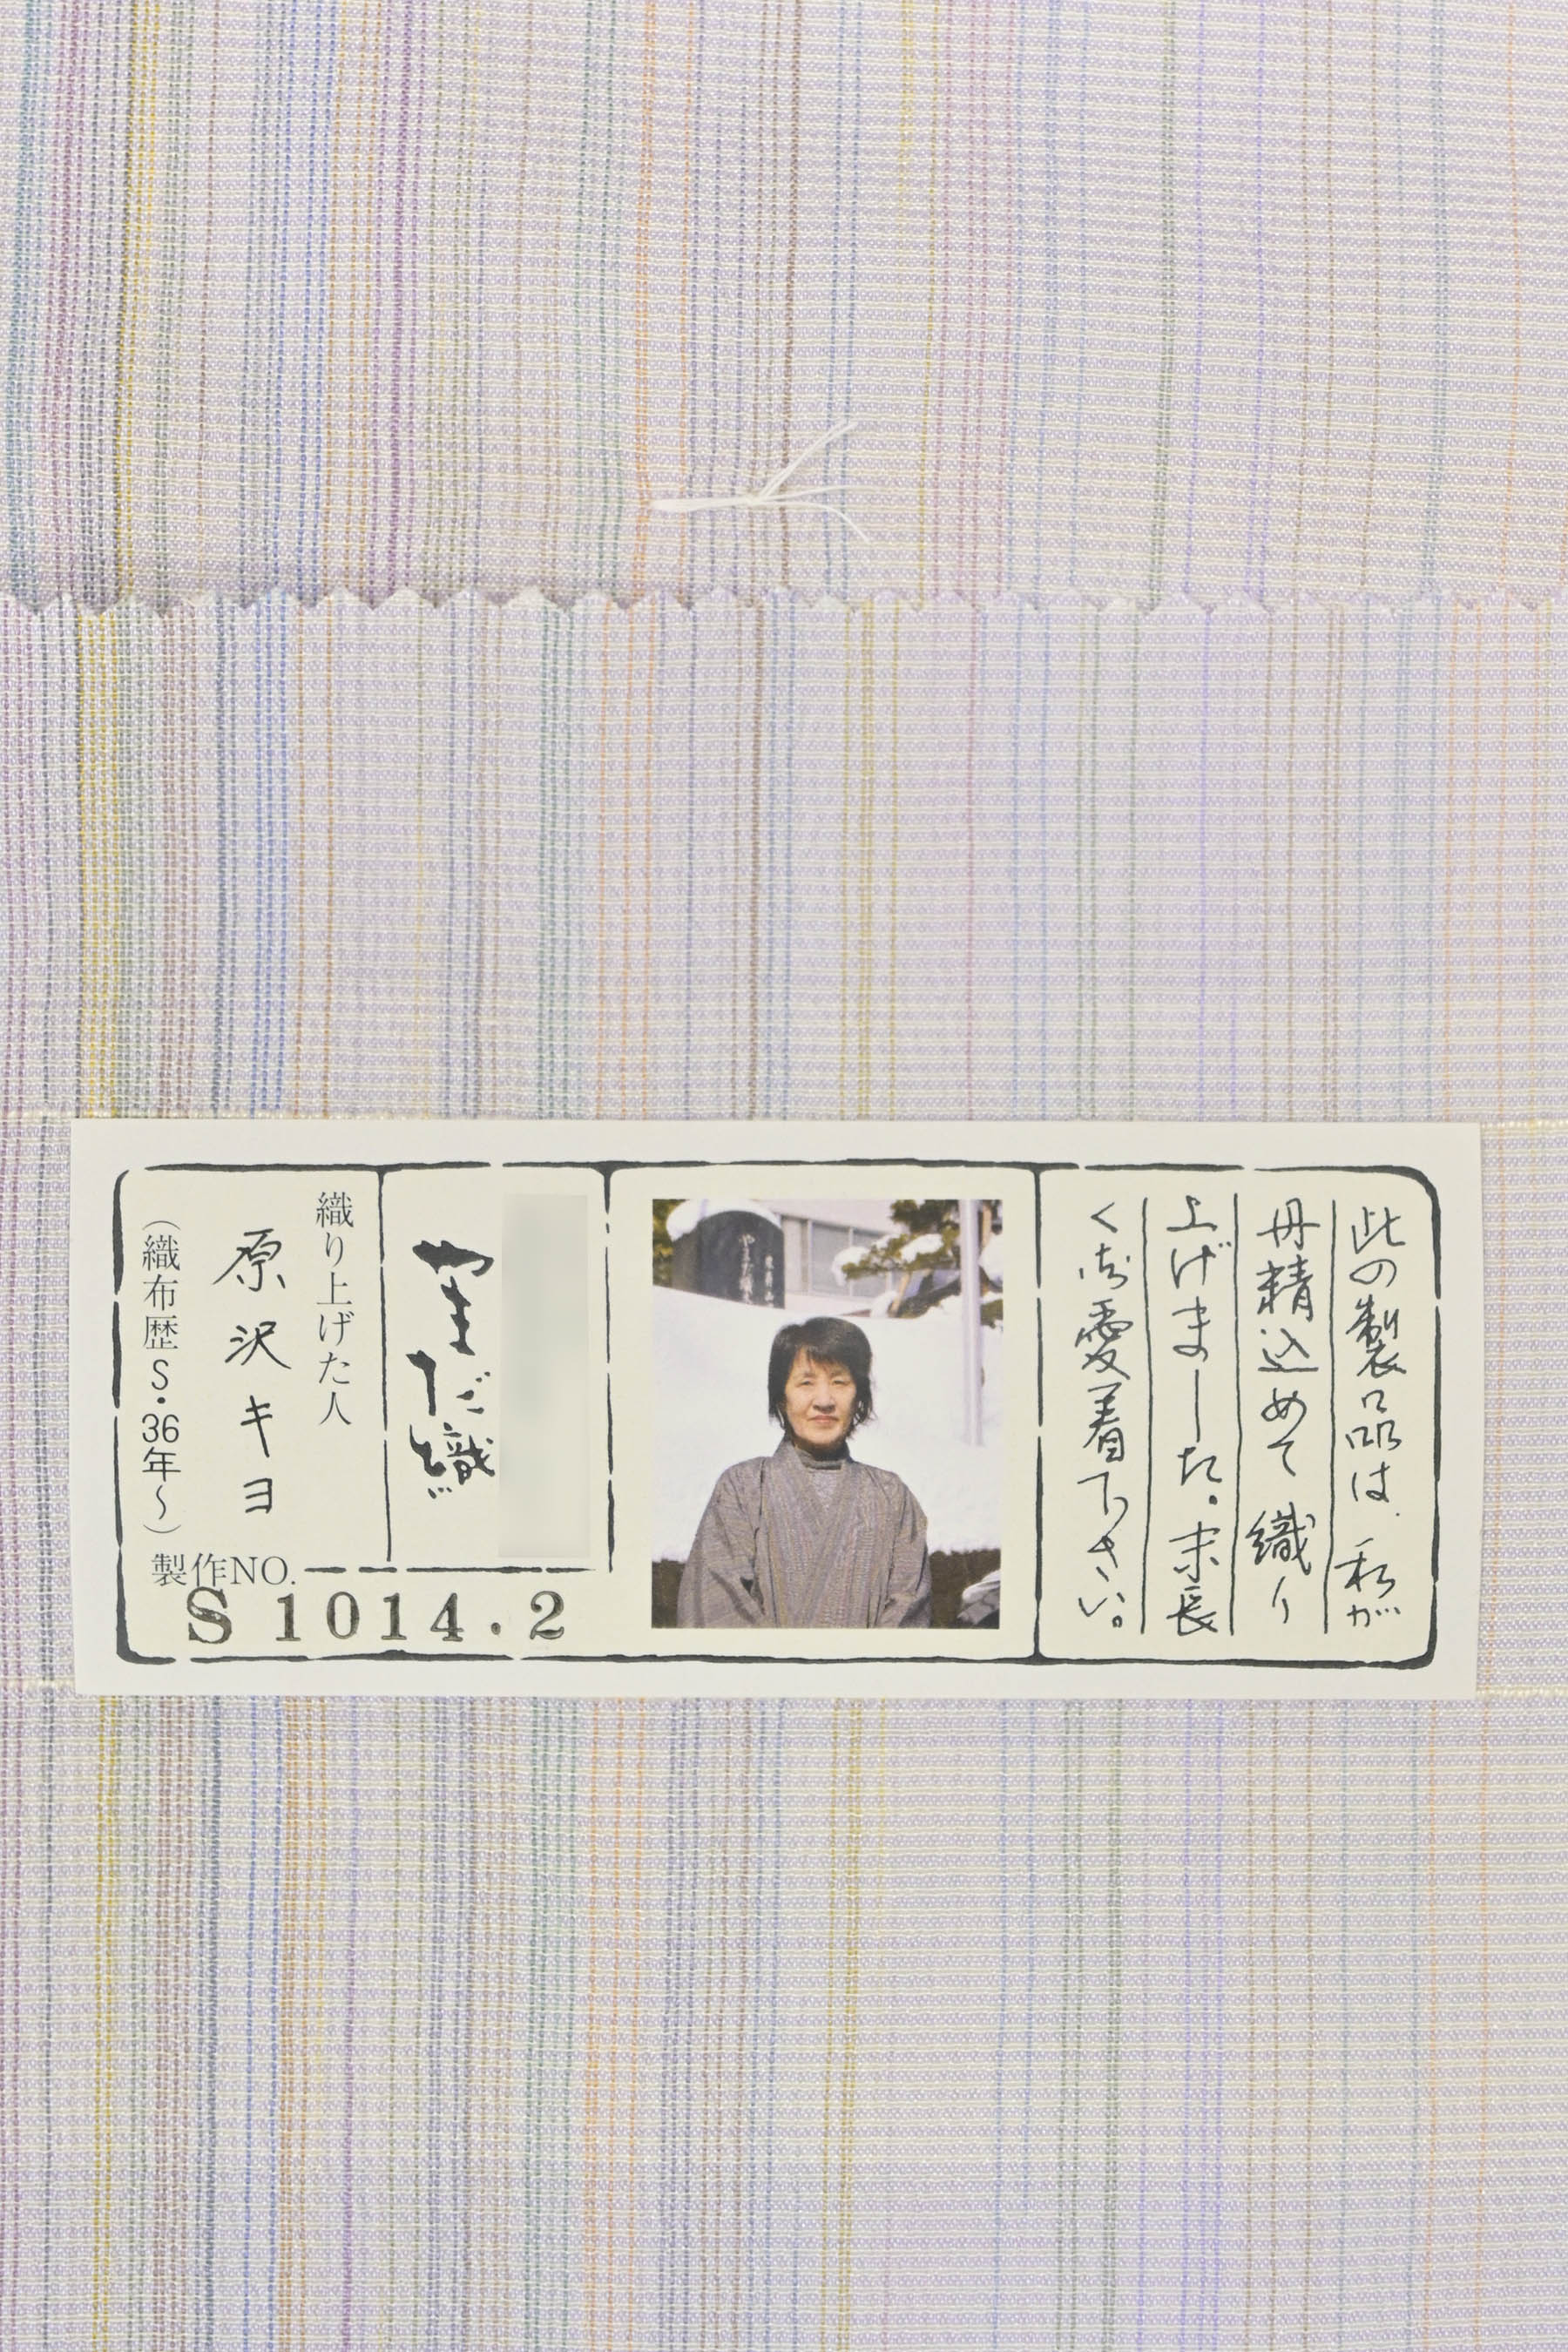 此の製品は、私が
丹精込めて織り
上げました。末長
く御愛着下さい。
やまだ織
織り上げた人
原沢キヨ
（織布歴S・36年～）
製作NO.
S 1014.2